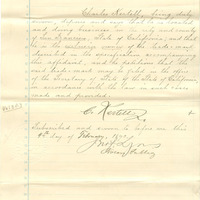 Charles Kestell, being duly
sworn, deposes and says that he is located
and doing business in the city and county
of San Francisco, State of California, and
is the exclusive owner of the trade-mark
set out in the specification
this affidavit, and he petitions that the
said trade-mark may be filed in the office
of the Secretary of State of the State of California
in accordance with the law in such cases
made and provided.
C. Kestell
Subscribed and sworn to before me this
day of February
Notary Public